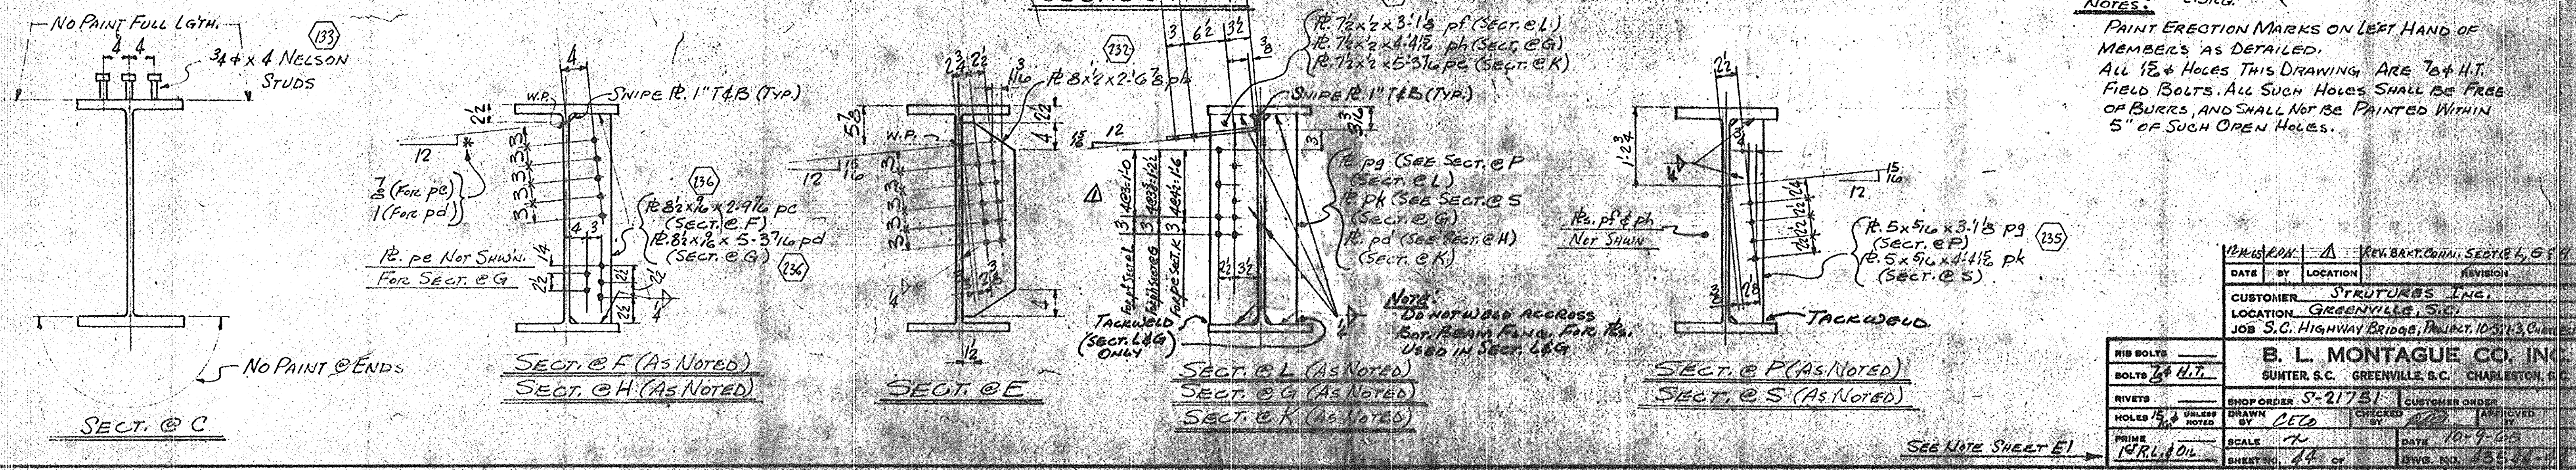 NO PAINT FULL LGTH.
4 4
133
3/4 φ x 4 NELSON
STUDS
NO PAINT @ ENDS
SECT. @ C
4
W.P.
SNIPE PL. 1" T&B (TYP.)
2 1/2
12
*
7/8 (FOR pc)
1 (FOR pd)
3 3 3 3 3
236
PL 8 1/2 x 9/16 x 2-9 7/16 pc
(SECT. @ F)
PL 8 1/2 x 9/16 x 5-3 7/16 pd
(SECT. @ G)
236
4 3
PL. pe NOT SHWN.
FOR SECT. @ G
1/4
2 1/2
2 1/2
2 1/2
SECT. @ F (AS NOTED)
SECT. @ H (AS NOTED)
2 3/4 2 1/2
232
PL 8 x 1/2 x 2-6 7/8 pb
5 7/8
W.P.
2 1/2
4
12
15/16
1/4
4
1 1/2
SECT. @ E
3 6 1/2 3 1/2
3/8
PL. 7 1/2 x 1/2 x 3-1 1/8 pf (SECT. @ L)
PL. 7 1/2 x 1/2 x 4-4 15/16 ph (SECT. @ G)
PL. 7 1/2 x 1/2 x 5-3 7/16 pe (SECT. @ K)
SNIPE PL. 1" T&B (TYP.)
15/16
12
3
PL pg (SEE SECT. @ P
(SECT. @ L)
PL pk (SEE SECT. @ S
(SECT. @ G)
PL. pd (SEE SECT. @ H)
(SECT. @ K)
2 1/2 3 1/2
TACKWELD
(SECT. L&G
ONLY)
NOTE:
DO NOT WELD ACCROSS
BOT. BEAM FLNG. FOR PLS.
USED IN SECT. L&G
SECT. @ L (AS NOTED)
SECT. @ G (AS NOTED)
SECT. @ K (AS NOTED)
2 1/2
1-2 3/4
1/4
15/16
12
PLS. pf & ph
NOT SHWN
PL. 5 x 5/16 x 3-1 1/8 pg
(SECT. @ P)
PL. 5 x 5/16 x 4-4 15/16 pk
(SECT. @ S)
235
TACKWELD
SECT. @ P (AS NOTED)
SECT. @ S (AS NOTED)
NOTES:
PAINT ERECTION MARKS ON LEFT HAND OF
MEMBERS AS DETAILED.
ALL 15/16 φ HOLES THIS DRAWING ARE 7/8 φ H.T.
FIELD BOLTS. ALL SUCH HOLES SHALL BE FREE
OF BURRS, AND SHALL NOT BE PAINTED WITHIN
5" OF SUCH OPEN HOLES.
REV. BRKT. CONN. SECT @ L, G &
DATE BY LOCATION REVISION
CUSTOMER STRUTURES INC.
LOCATION GREENVILLE, S.C.
JOB S.C. HIGHWAY BRIDGE, PROJECT.
B. L. MONTAGUE CO. INC.
SUMTER, S.C. GREENVILLE, S.C. CHARLESTON, S.C.
RIB BOLTS
BOLTS 7/8 φ H.T.
RIVETS
HOLES 15/16 φ UNLESS NOTED
PRIME
SHOP ORDER S-21751 CUSTOMER ORDER
DRAWN BY CECO CHECKED BY APPROVED BY
SCALE DATE 10-9-65
SHEET NO. 44 OF DWG. NO.
SEE NOTE SHEET E1